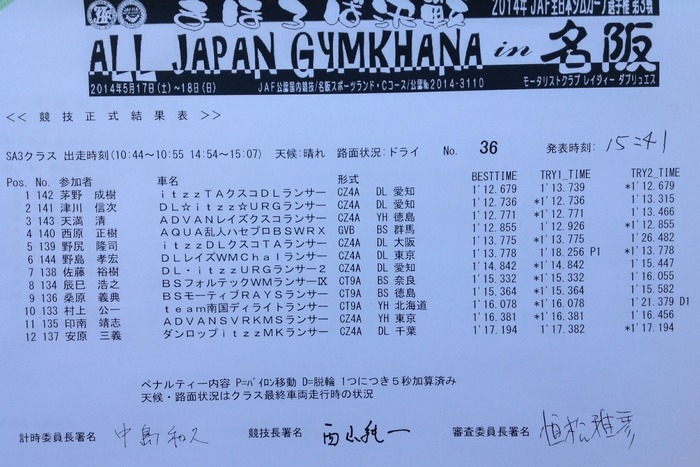 まほろば決戦 2014年 JAF全日本ジムカーナ選手権 第3戦
ALL JAPAN GYMKHANA in 名阪
2014年5月17日(土)~18日(日) JAF公認国内競技/名阪スポーツランド・Cコース/公認№2014-3110 モータリストクラブ レイジィー ダブリュエス
<< 競 技 正 式 結 果 表 >>
SA3クラス 出走時刻(10:44~10:55 14:54~15:07) 天候:晴れ 路面状況:ドライ No. 36 発表時刻: 15:41
Pos. No. 参加者 車名 形式 BESTTIME TRY1_TIME TRY2_TIME
1 142 茅野 成樹 itzzTAクスコDLランサー CZ4A DL 愛知 1'12.679 1'13.739 *1'12.679
2 141 津川 信次 DL☆itzz☆URGランサー CZ4A DL 愛知 1'12.736 *1'12.736 1'13.315
3 143 天満 清 ADVANレイズクスコランサー CZ4A YH 徳島 1'12.771 *1'12.771 1'13.466
4 140 西原 正樹 AQUA乱人ハセプロBSWRX GVB BS 群馬 1'12.855 1'12.926 *1'12.855
5 139 野尻 隆司 itzzDLクスコTAランサー CZ4A DL 大阪 1'13.775 *1'13.775 1'26.482
6 144 野島 孝宏 DLレイズWMChalランサー CZ4A DL 東京 1'13.778 1'18.256 P1 *1'13.778
7 138 佐藤 裕樹 DL・itzzURGランサー2 CZ4A DL 愛知 1'14.842 *1'14.842 1'15.447
8 134 辰巳 浩之 BSフォルテックWMランサーⅨ CT9A BS 奈良 1'15.332 *1'15.332 1'16.055
9 136 桑原 義典 BSモーティブRAYSランサー CT9A BS 徳島 1'15.364 *1'15.364 1'15.582
10 133 村上 公一 team南国ディライトランサー CT9A YH 北海道 1'16.078 *1'16.078 1'21.379 D1
11 135 印南 靖志 ADVANSVRKMSランサー CZ4A YH 東京 1'16.381 *1'16.381 1'16.456
12 137 安原 三義 ダンロップitzzMKランサー CZ4A DL 千葉 1'17.194 1'17.382 *1'17.194
ペナルティー内容 P=ﾊﾟｲﾛﾝ移動 D=脱輪 1つにつき5秒加算済み
天候・路面状況はクラス最終車両走行時の状況
計時委員長署名 中島 和久 競技長署名 西山純一 審査委員長署名 恒松雅彦